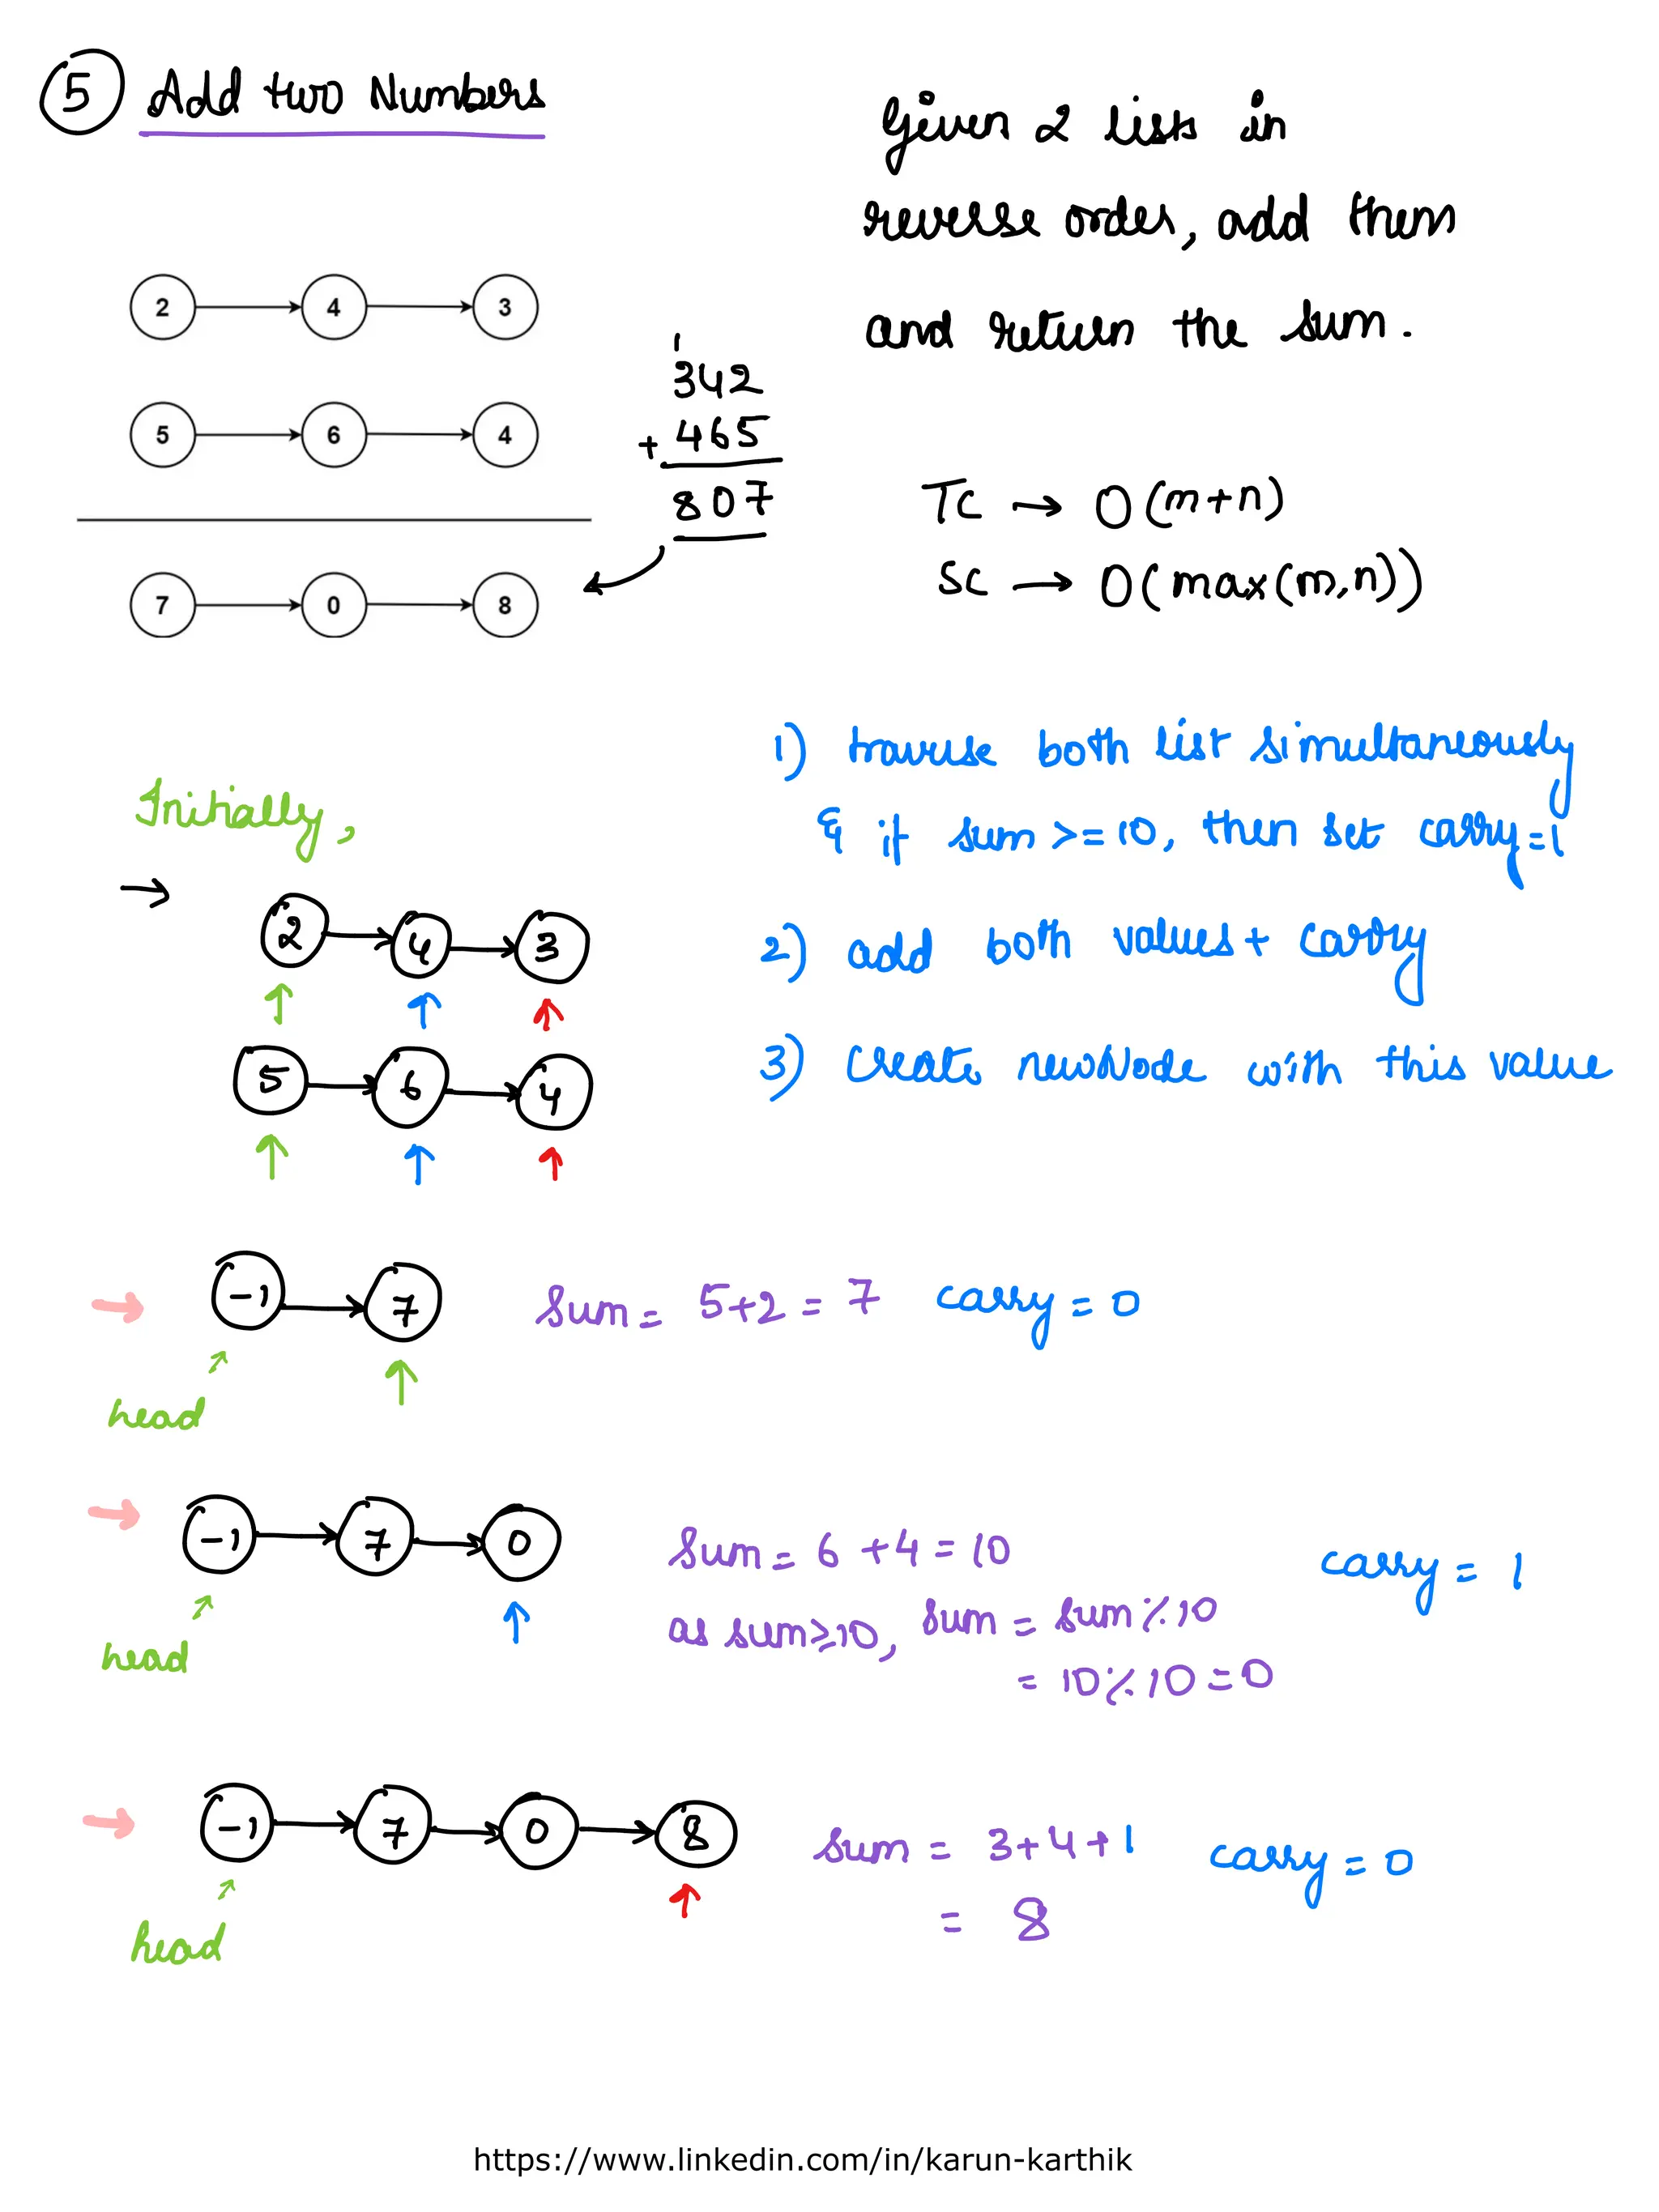 5 Add two Numbers
Given 2 lists in
reverse order, add them
and return the sum.
2 4 3
5 6 4
7 0 8
1
342
+ 465
807
TC → O(m+n)
SC → O(max(m,n))
1) traverse both list simultaneously
& if sum >= 10, then set carry = 1
2) add both values + carry
3) Create newNode with this value
Initially,
→
2 → 4 → 3
5 → 6 → 4
→ -1 → 7 sum = 5+2 = 7 carry = 0
head
→ -1 → 7 → 0 sum = 6 + 4 = 10 carry = 1
as sum ≥ 10, sum = sum % 10
head
= 10 % 10 = 0
→ -1 → 7 → 0 → 8 sum = 3 + 4 + 1 carry = 0
= 8
head
https://www.linkedin.com/in/karun-karthik